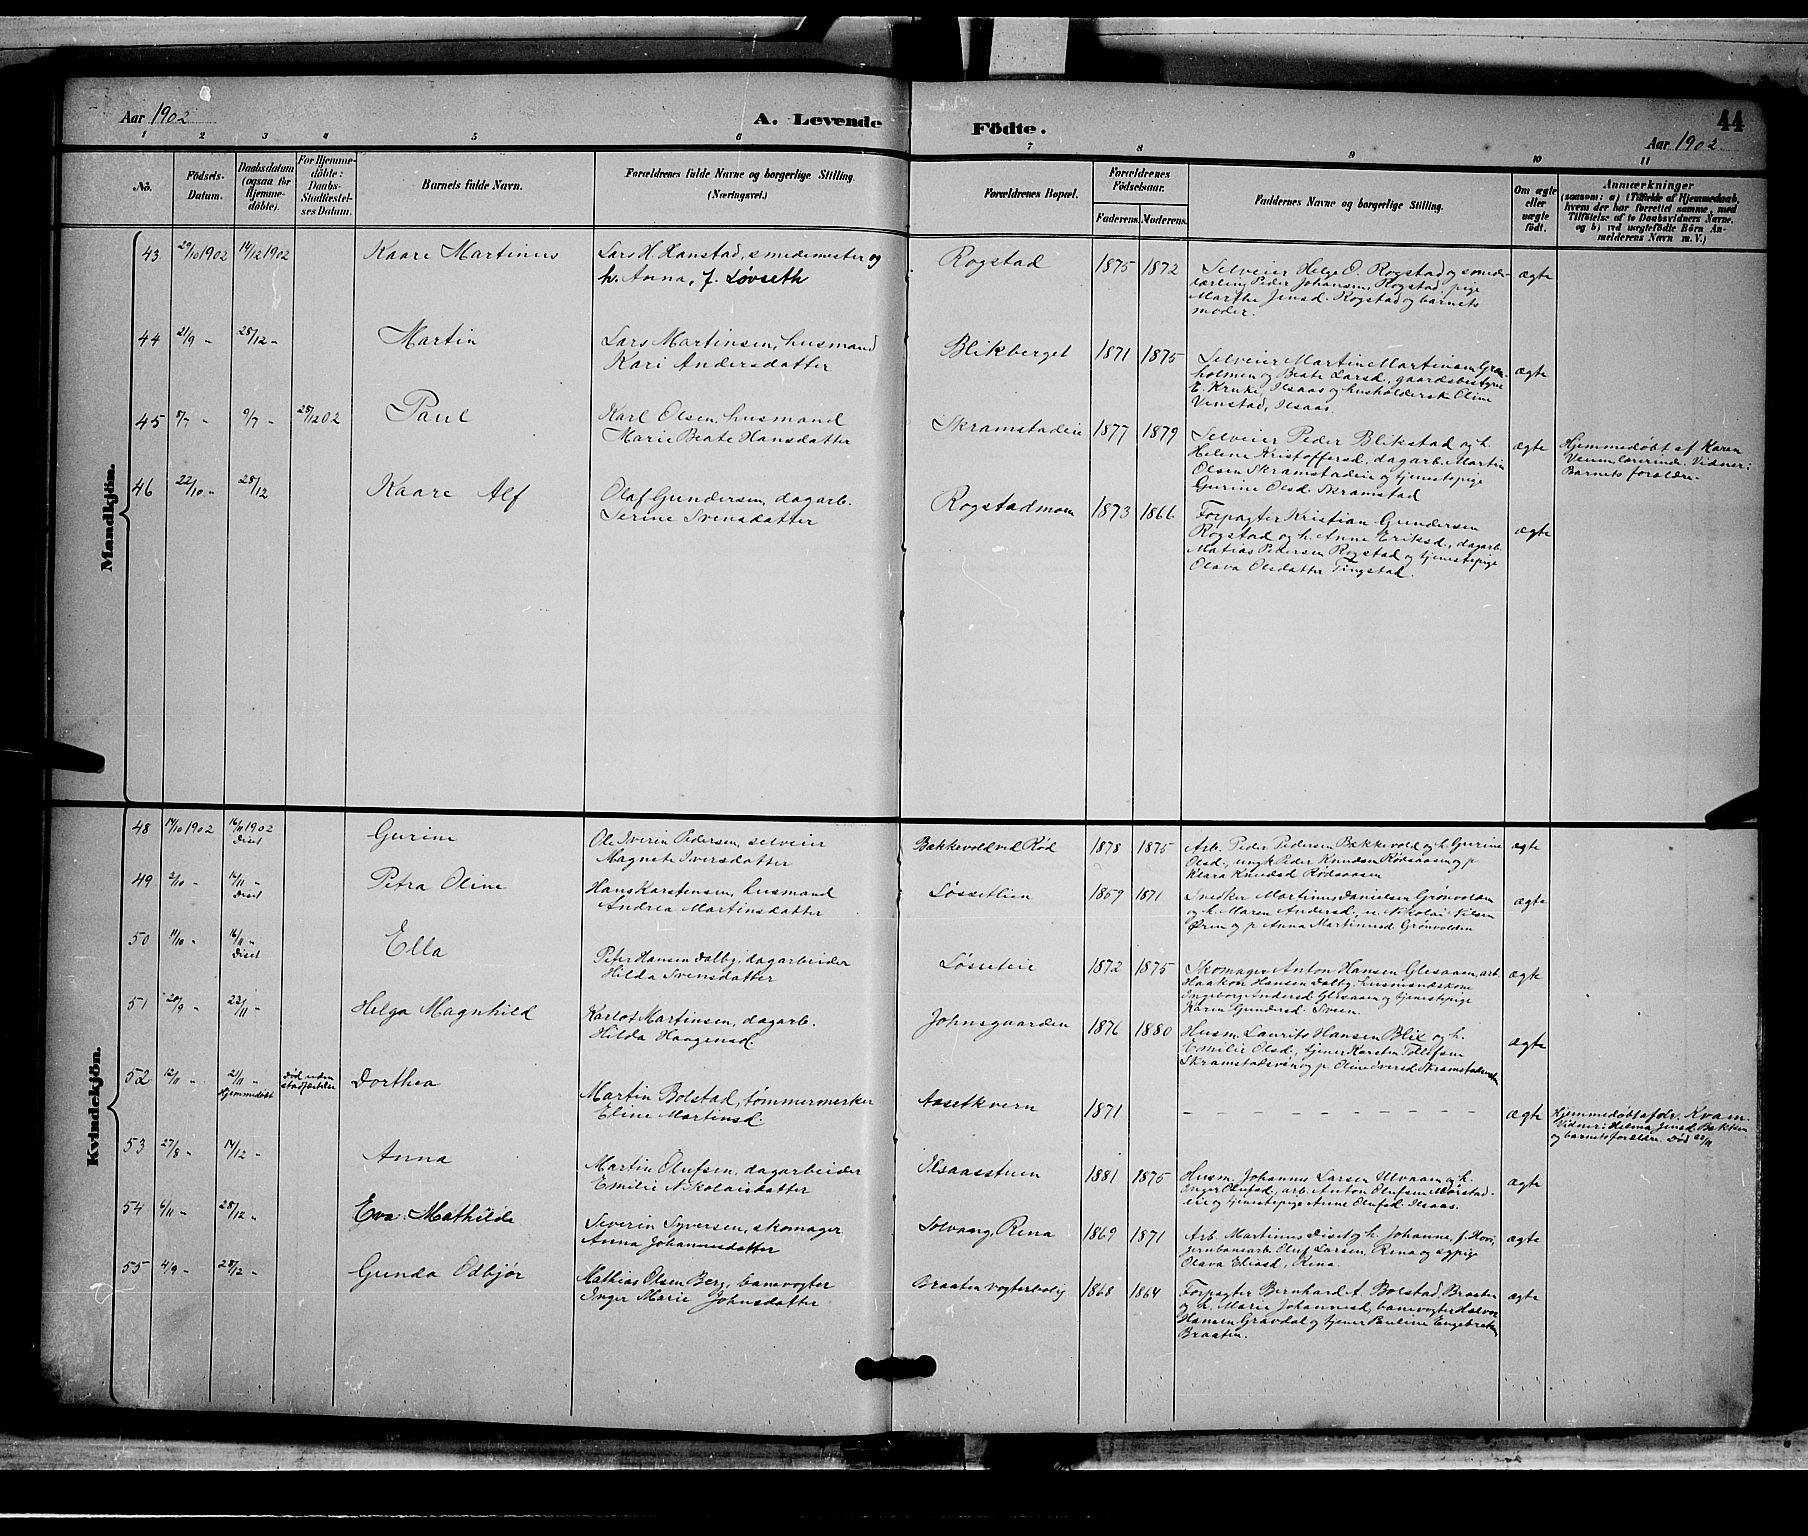 Aar 1902
A. Levende Födte.
44
Aar 1902
1 2 3 4 5 6 7 8 9 10 11
No.
Födsels-Datum.
Daabsdatum (ogsaa for Hjemme-døbte).
For Hjemme-døbte: Daabs-Stadfæstel-ses Datum.
Barnets fulde Navn.
Forældrenes fulde Navne og borgerlige Stilling. (Næringsvei.)
Forældrenes Bopæl.
Forældrenes Födselsaar.
Faderens. Moderens.
Faddernes Navne og borgerlige Stilling.
Om ægte eller uægte födt.
Anmærkninger
(saasom: a) i Tilfælde af Hjemmedaab, hvem der har forrettet samme, med Tilföielse af to Daabsvidners Navne, og b) ved uægtefödte Börn An-melderens Navn m. V.)
Mandkjön.
43 29/10 1902 14/12 1902 Kaare Martinus
Lars H. Hanstad, smedemester og
h. Anna, f. Løvseth
Rogstad 1875 1872
Selveier Helge O. Rogstad og smede-
lærling Peder Johansen, Rogstad, pige
Marthe Jensd. Rogstad og barnets
moder.
ægte
44 21/9 - 28/12 - Martin
Lars Martinsen, husmand
Kari Andersdatter
Blikberget 1871 1875
Selveier Martin Martinsen Gran-
holmen og Beate Larsd., gaardsbestyrer
E. Kruke, Ilsaas og husholderske Oline
Venstad, Ilsaas.
ægte
45 7/7 - 9/7 - 28/12 02 Paul
Karl Olsen, husmand
Marie Beate Hansdatter
Skramstadeie 1877 1879
Selveier Peder Blikstad og h.
Helene Kristoffersd., dagarb. Martin
Olsen Skramstadeie og tjenestepige
Gurine Olsd. Skramstad
ægte
Hjemmedøbt af Karen
Veum, lærerinde. Vidner:
Barnets forældre.
46 22/10 - 28/12 Kaare Alf
Olaf Gundersen, dagarb.
Serine Svensdatter
Rogstadmoen 1873 1866
Forpagter Kristian Gundersen
Rogstad og h. Anne Eriksd., dagarb.
Matias Pedersen Rogstad og tjenestepige
Olava Olsdatter Tingstad.
ægte
Kvindekjön.
48 14/10 1902 16/11 1902 Diset Gurine
Ole Iverin Pedersen, selveier
Magnete Iversdatter
Bækkevold ved Rød 1878 1875
Arb. Peder Pedersen Bækkevold og h. Gurine
Olsd., ungk. Peder Knudsen Rødsaasen og p.
Klara Knudsd. Rødsaasen
ægte
49 2/10 - 16/11 - Diset Petra Oline
Hans Karstensen, husmand
Andrea Martinsdatter
Løssetlien 1859 1871
Snedker Martinus Danielsen Grønvolden
og h. Maren Andersd., u. Nikolai Nilsen
Øren og p. Anna Martinusd Grønvolden
ægte
50 11/10 - 16/11 - Diset Ella
Peter Hansen Dalby, dagarbeider
Hilda Svensdatter
Løsseteie 1872 1875
Skomager Anton Hansen Glesaaen, arb.
Haakon Hansen Dalby, husmandskone
Ingeborg Andersd Glesaaen og tjenestepige
Karen Gundersd. Sveen.
ægte
51 20/9 - 23/11 - Helga Magnhild
Karlot Martinsen, dagarb.
Hilda Haagensd.
Johnsgaarden 1876 1880
Husm. Laurits Hansen Blix og h.
Emilie Olsd., tjener Karsten Tollefsen
Skramstadsveen og p. Oline Iversd Skramstadveen
ægte
52 12/11 - 21/11 - Hjemmedøbt Død uden stadfæstelse Dorthea
Martin Bolstad, tømmermerker
Eline Martinsd.
Aasetkvern 1871 - - - - - - - - - -
ægte
Hjemmedøbt af dr. Kvam.
Vidner: Helma Jensd Bakken
og barnets forældre. Død 22/11
53 27/8 - 14/12 - Anna
Martin Olufsen, dagarbeider
Emilie Nikolaisdatter
Ilsaasstuen 1881 1875
Husm. Johannes Larsen Ulvaaen og h.
Inger Olufsd., arb. Anton Olufsen Mørstad-
eie og tjenestepige Anne Olufsd. Ilsaas.
ægte
54 6/11 - 28/12 - Eva Mathilde
Severin Syversen, skomager
Anna Johannesdatter
Solvaang, Rena 1869 1871
Arb. Martinus Diset og h. Johanne, f. Hovi,
jernbanearb. Oluf Larsen, Rena og sypige
Olava Eliasd., Rena.
ægte
55 4/9 - 28/12 - Gunda Odbjør
Mathias Olsen Berg, banevogter
Inger Marie Johnsdatter
Braaten vogterbolig 1868 1864
Forpagter Bernhard A. Bolstad, Braaten
og h. Marie Johannesd, banevogter Halvor
Hansen Gravdal og tjener Pauline Engebretsen
Braaten.
ægte